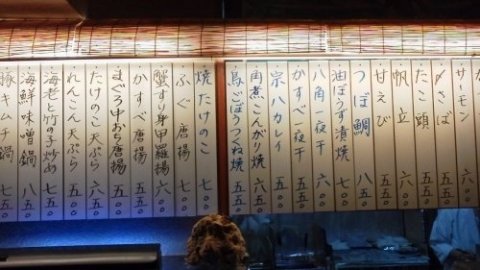 サーモン
〆さば
たこ頭 五五〇
帆立 六〇〇
甘えび 五五〇
つぼ鯛 八五〇
油ぼうず漬焼
八角一夜干
かすべ一夜干
宗八カレイ 六五〇
角煮こんがり焼 五五〇
鳥ごぼうつくね焼 五五〇
焼たけのこ 七〇〇
ふぐ唐揚 七五〇
蟹すり身甲羅揚 六〇〇
かすべ唐揚 五五〇
まぐろ中おち唐揚 五五〇
たけのこ天ぷら 六五〇
れんこん天ぷら 五五〇
海老と竹の子炒め 七五〇
海鮮味噌鍋 八五〇
豚キムチ鍋 七五〇